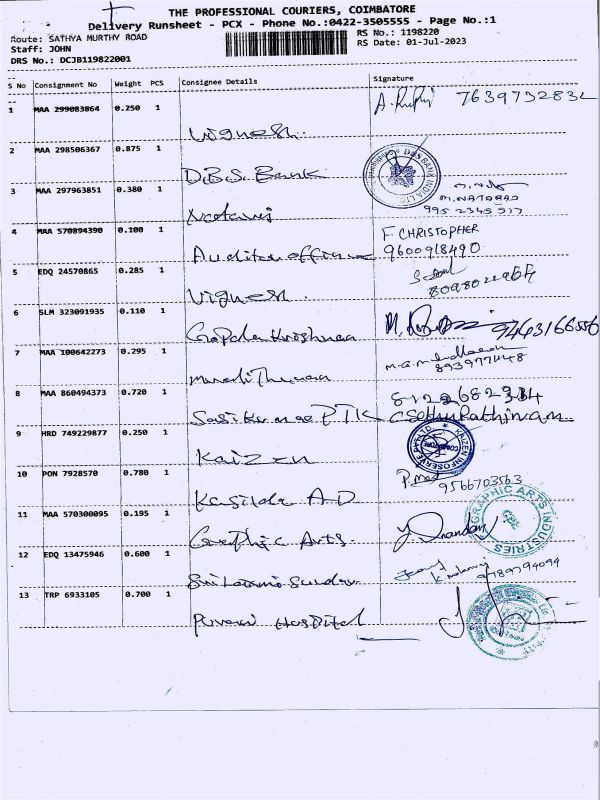 THE PROFESSIONAL COURIERS, COIMBATORE
Delivery Runsheet - PCX - Phone No.:0422-3505555 - Page No.:1
Route: SATHYA MURTHY ROAD
RS No.: 1198220
Staff: JOHN
RS Date: 01-Jul-2023
DRS No.: DCJB119822001
S No Consignment No Weight PCS Consignee Details Signature
1 MAA 299083864 0.250 1
Vignesh
2 MAA 298506367 0.875 1
D.B.S. Bank
3 MAA 297963851 0.380 1
M.NATARAJ
4 MAA 570894390 0.100 1
F CHRISTOPHER
9600918490
Auditor office
5 EDQ 24570865 0.285 1
Vignesh
6 SLM 323091935 0.110 1
Gopala Krishnan 9443166556
7 MAA 100642273 0.295 1
8939777448
8 MAA 860494373 0.720 1
Sasikumar PTK
9 HRD 749229877 0.250 1
Kaizen
10 PON 7928570 0.780 1
9566703563
11 MAA 570300095 0.195 1
GRAPHIC ARTS INDUSTRIES
Graphic Arts
12 EDQ 13475946 0.600 1
9789794094
13 TRP 6933105 0.700 1
Hospital